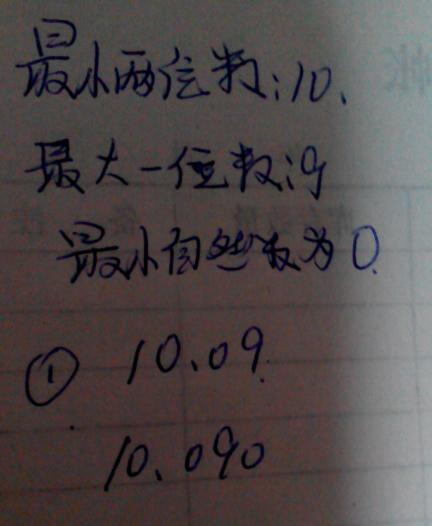 最小两位数:10.
最大一位数:9
最小自然数为0.
① 10.09.
10.090